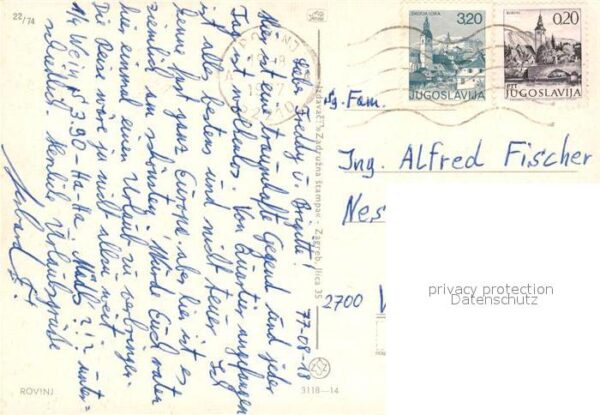 22/74
77-08-18
Liebe Fredly u. Brigitte!
Hier ist eine traumhafte Gegend und jeder
Tag ist wolkenlos. Von Quartier angefangen
ist alles bestens und nicht teuer. Ich
kenne fast ganz Europa aber hier ist es
ziemlich am schönsten. Würde Euch raten
hier einmal einen Urlaub zu verbringen.
Die Reise wäre ja nicht allzu weit
1/4 Wein S 3.90-Ha-Ha, Mahls?!? - unter=
schreibt. Herzliche Urlaubsgrüße
ROVINJ
Izdavač i: Zadružna štampa - Zagreb, Ilica 35
3118-14
ŠKOFJA LOKA
3,20
JUGOSLAVIJA
0,20
PTT JUGOSLAVIJA
Fam.
Ing. Alfred Fischer
Nes
2700 W
privacy protection
Datenschutz